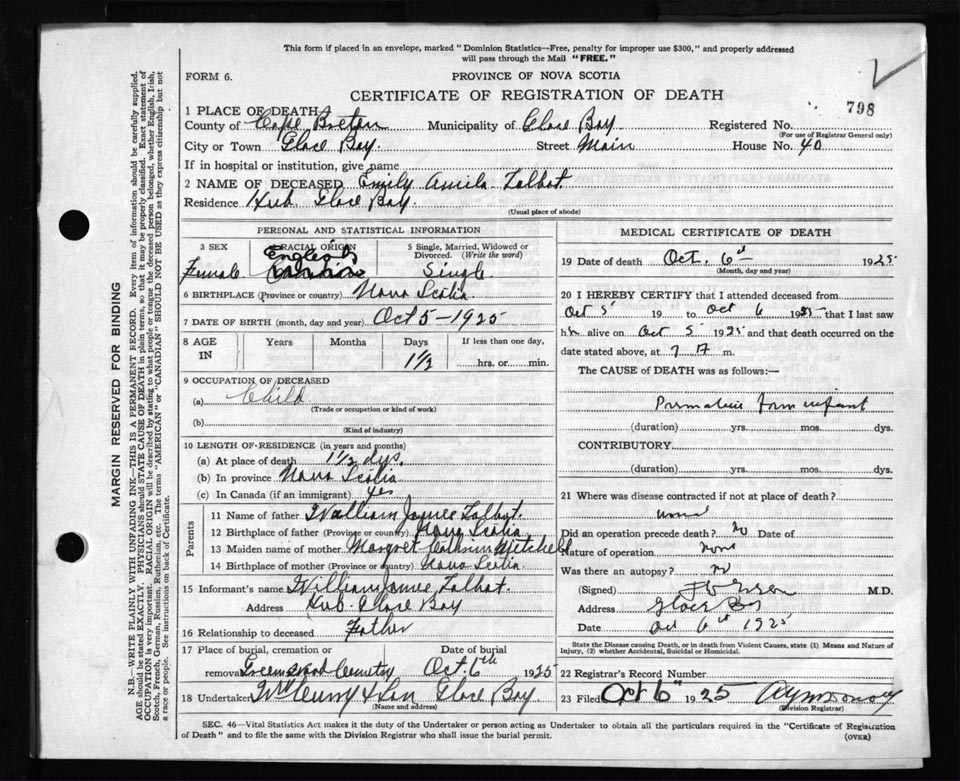 This form if placed in an envelope, marked "Dominion Statistics—Free, penalty for improper use $300," and properly addressed
will pass through the Mail "FREE."
FORM 6.
PROVINCE OF NOVA SCOTIA
CERTIFICATE OF REGISTRATION OF DEATH
798
1 PLACE OF DEATH
County of Cape Breton Municipality of Glace Bay Registered No.
(For use of Registrar General only)
City or Town Glace Bay. Street Main House No. 40
If in hospital or institution, give name
2 NAME OF DECEASED Emily Amila Talbot.
Residence Hub Glace Bay.
(Usual place of abode)
PERSONAL AND STATISTICAL INFORMATION
3 SEX
Female
RACIAL ORIGIN
English
5 Single, Married, Widowed or
Divorced. (Write the word)
Single
6 BIRTHPLACE (Province or country) Nova Scotia
7 DATE OF BIRTH (month, day and year) Oct 5-1925
8 AGE IN
Years Months Days If less than one day,
1½ hrs. or min.
9 OCCUPATION OF DECEASED
(a) Child
(Trade or occupation or kind of work)
(b)
(Kind of industry)
10 LENGTH OF RESIDENCE (in years and months)
(a) At place of death 1½ dys.
(b) In province Nova Scotia
(c) In Canada (if an immigrant) yes
Parents
11 Name of father William James Talbot.
12 Birthplace of father (Province or country) Nova Scotia
13 Maiden name of mother Margret Mitchell
14 Birthplace of mother (Province or country) Nova Scotia.
15 Informant's name William James Talbot.
Address Hub. Glace Bay
16 Relationship to deceased Father
17 Place of burial, cremation or removal
Greenwood Cemetry
Date of burial
Oct. 6th 1925
18 Undertaker & Son Glace Bay
(Name and address)
MEDICAL CERTIFICATE OF DEATH
19 Date of death Oct. 6th 1925
(Month, day and year)
20 I HEREBY CERTIFY that I attended deceased from
Oct 5 19 to Oct 6 1925 that I last saw
h alive on Oct 5 1925 and that death occurred on the
date stated above, at 7 A m.
The CAUSE OF DEATH was as follows:—
infant
(duration) yrs. mos. dys.
CONTRIBUTORY
(duration) yrs. mos. dys.
21 Where was disease contracted if not at place of death?
Did an operation precede death? no Date of
Nature of operation none
Was there an autopsy? no
(Signed) M.D.
Address Glace Bay
Date Oct 6th 1925
State the Disease causing Death, or in death from Violent Causes, state (1) Means and Nature of
Injury, (2) whether Accidental, Suicidal or Homicidal.
22 Registrar's Record Number
23 Filed Oct 6" 1925
(Division Registrar)
SEC. 46—Vital Statistics Act makes it the duty of the Undertaker or person acting as Undertaker to obtain all the particulars required in the "Certificate of Registration
of Death" and to file the same with the Division Registrar who shall issue the burial permit.
(OVER)
MARGIN RESERVED FOR BINDING
N.B.—WRITE PLAINLY WITH UNFADING INK—THIS IS A PERMANENT RECORD. Every item of information should be carefully supplied.
AGE should be stated EXACTLY. PHYSICIANS should STATE CAUSE OF DEATH in plain terms, so that it may be properly classified. Exact statement of
OCCUPATION is very important. RACIAL ORIGIN will be described by stating to what people or tongue the deceased person belonged, whether English, Irish,
Scotch, French, German, Russian, Ruthenian, etc. The terms "AMERICAN" or "CANADIAN" SHOULD NOT BE USED as they express citizenship but not
a race or people. See instructions on back of Certificate.